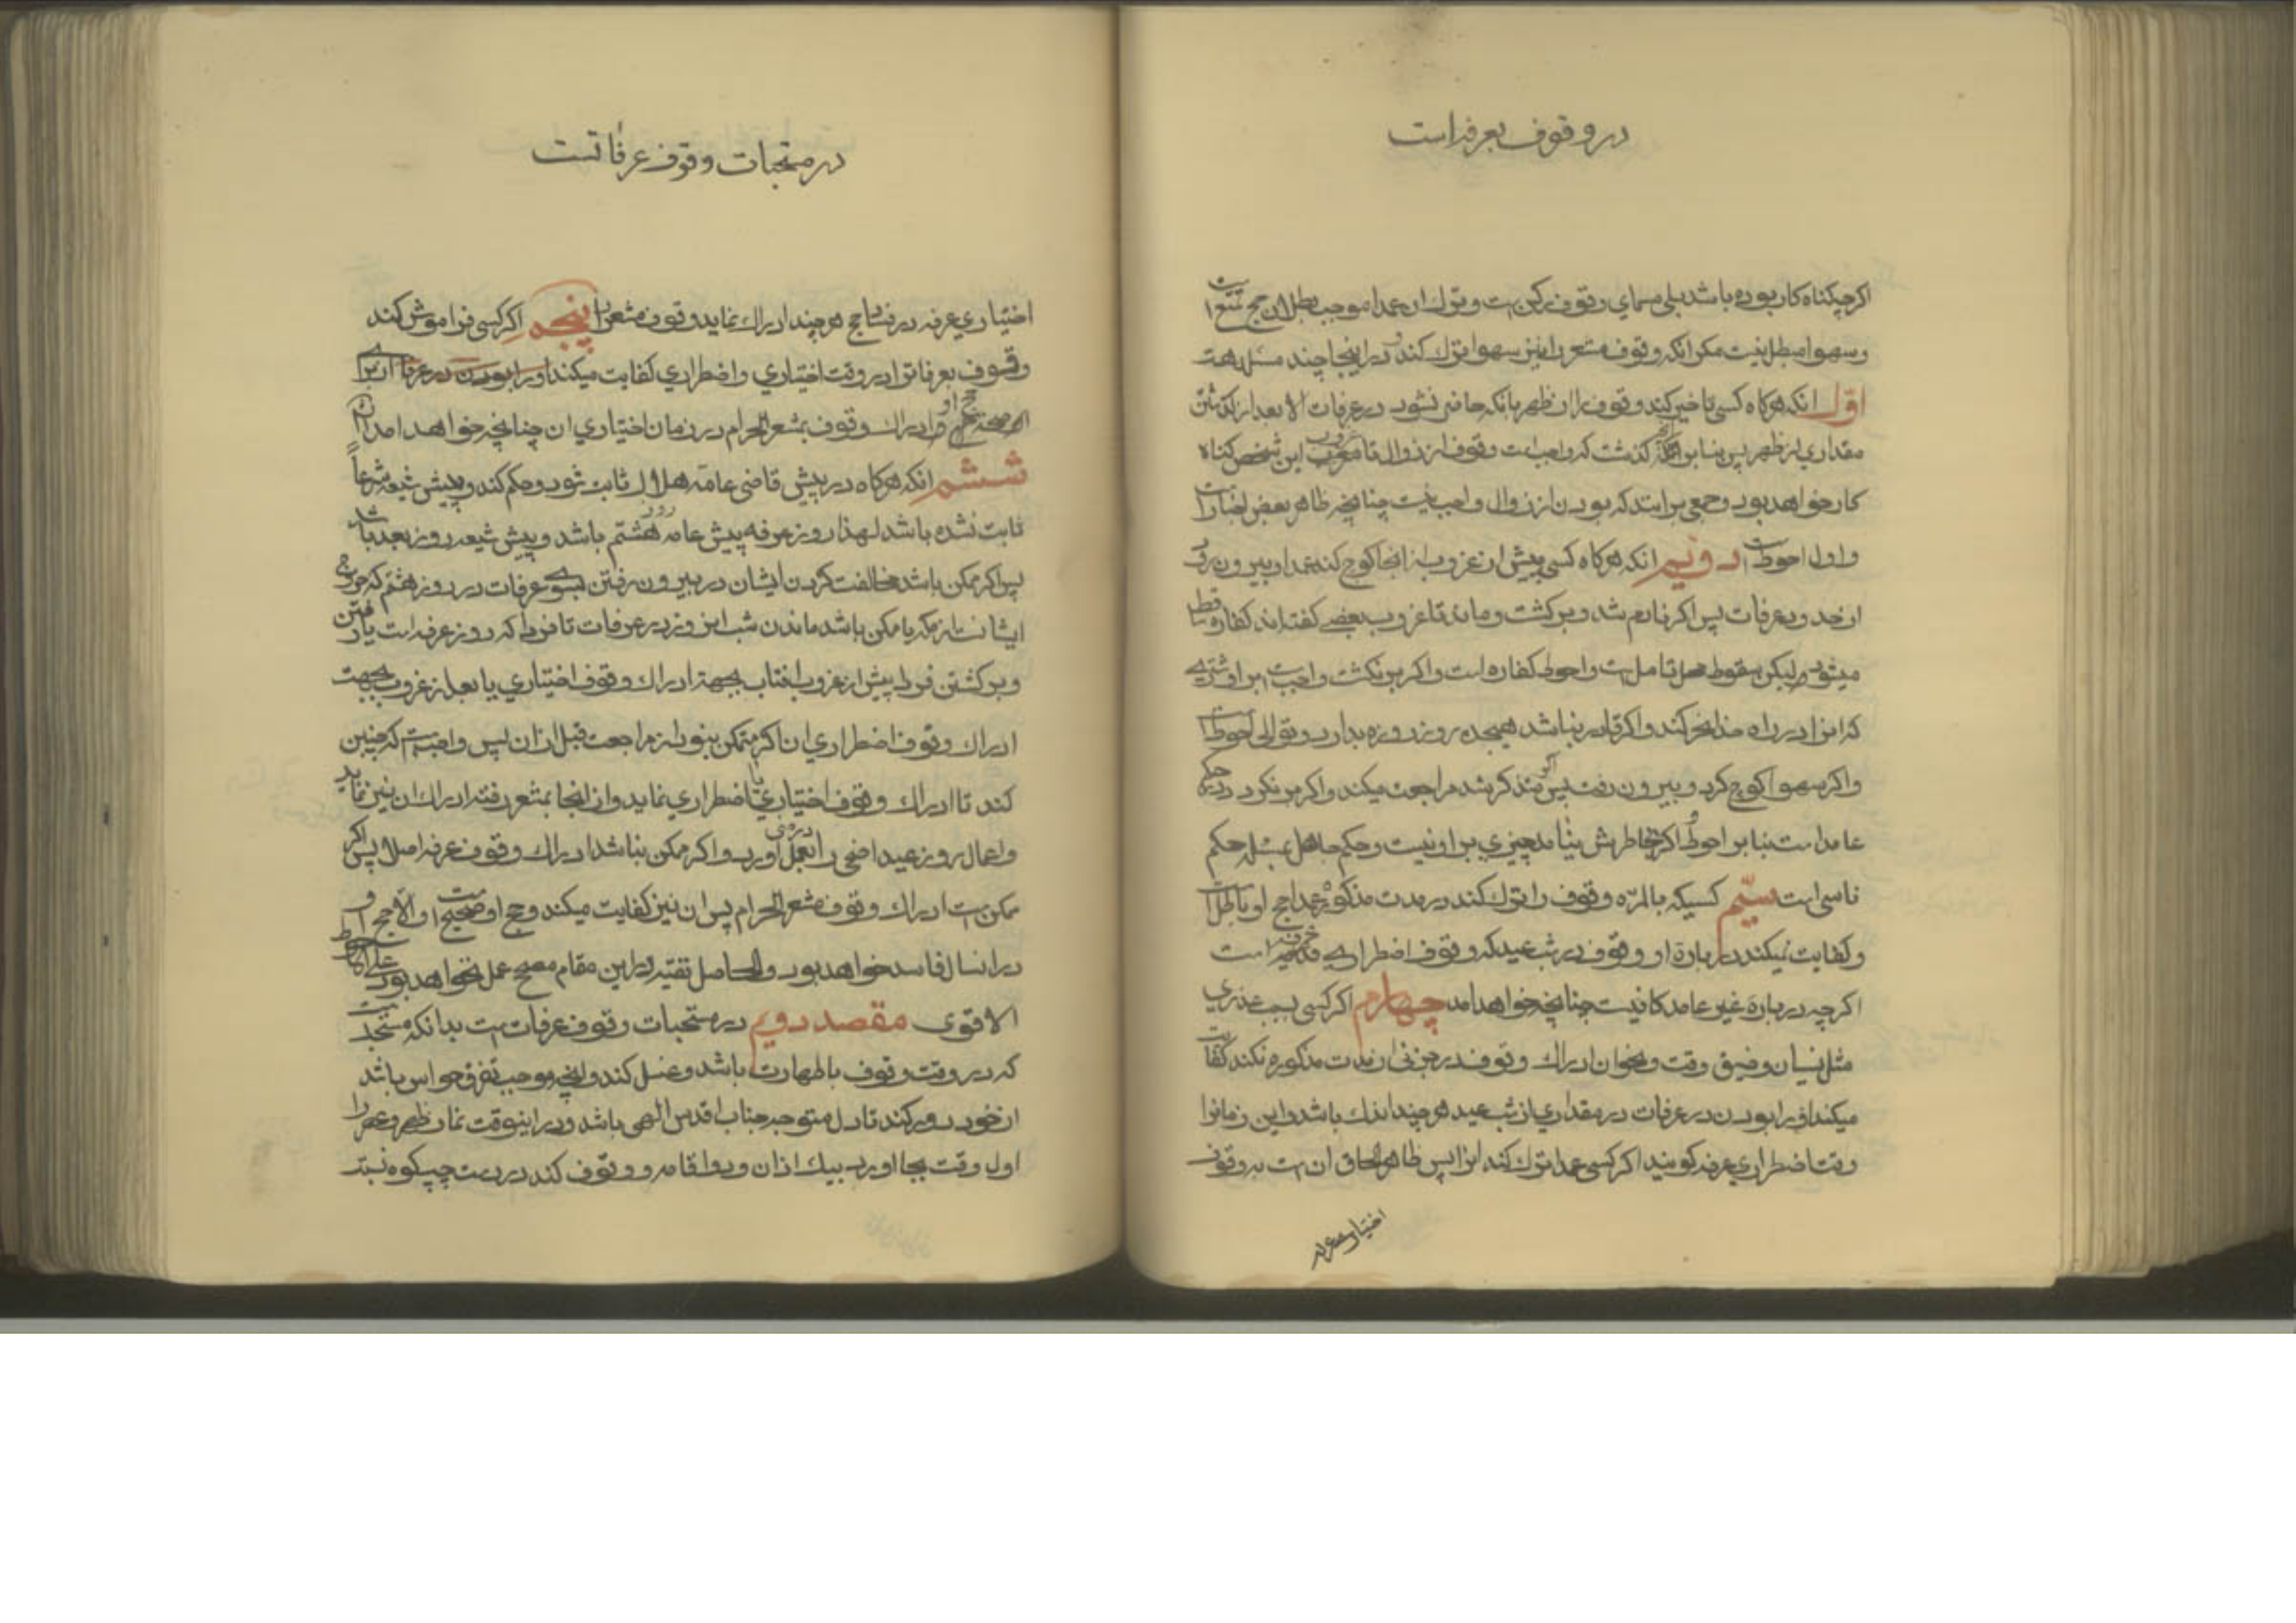 در وقوف بعرفه است
اکرچه کناه کار بوده باشد بلی مسمای وقوف رکن است و ترک ان عمدا موجب بطلان حج تمتع است
و سهوا مبطل نیست مکر انکه وقوف مشعر را نیز سهوا ترک کند و در اینجا چند مسئله است
اول انکه هرکاه کسی تاخیر کند وقوف را از ظهر بانکه حاضر نشود در عرفات الا بعد از کذشتن
مقداری از ظهر پس بنا بر انکه کذشت که واجب است وقوف از زوال تا غروب این شخص کناه
کار خواهد بود و جمعی برانند که بودن از زوال واجب نیست چنانچه ظاهر بعض اخبار است
و اول احوط است دویم انکه هرکاه کسی پیش از غروب از انجا کوچ کند عمدا و بیرون رود
از حدود عرفات پس اکر نادم شد و برکشت و ماند تا غروب بعضی کفته اند کفاره ساقط
میشود و لیکن سقوط محل تامل است و احوط کفاره است و اکر برنکشت واجب است بر او شتری
که انرا در راه خدا نحر کند و اکر قادر نباشد هیجده روز روزه بدارد و توالی احوط است
و اکر سهوا کوچ کرد و بیرون رفت پس اکر متذکر شد مراجعت میکند و اکر برنکردد در حکم
عامد است بنا بر احوط و اکر بخاطرش نیامد چیزی بر او نیست و حکم جاهل بمسئله حکم
ناسی است سیم کسیکه بالمره وقوف را ترک کند در مدت مذکوره عمدا حج او باطل است
و کفایت نمیکند در باره او وقوف در شب عید که وقوف اضطراری عرفه است
اکرچه در بارهٔ غیر عامد کافیست چنانچه خواهد امد چهارم اکر کسی بسبب عذری
مثل نسیان و ضیق وقت و نحو ان ادراک وقوف در جزئی از مدت مذکوره نکند کفایت
میکند او را بودن در عرفات در مقداری از شب عید هرچند اندک باشد و این زمانرا
وقت اضطراری عرفه کویند و اکر کسی عمدا ترک کند انرا پس ظاهر الحاق ان است به وقوف
اختیاری عرفه
در مستحبات وقوف عرفاتست
اختیاری عرفه در فساد حج هرچند ادراک نماید وقوف مشعر را پنجم اکر کسی فراموش کند
وقوف بعرفات را در وقت اختیاری و اضطراری کفایت میکند او را بودن در عرفات از برای
صحت حج او ادراک وقوف بمشعر الحرام در زمان اختیاری ان چنانچه خواهد امد
ششم انکه هرکاه در پیش قاضی عامه هلال ثابت شود و حکم کند و پیش شیعه شرعاً
ثابت نشده باشد لهذا روز عرفه پیش عامه روز هشتم باشد و پیش شیعه روز بعد باشد
پس اکر ممکن باشد مخالفت کردن ایشان در بیرون رفتن بسوی عرفات در روز هشتم که خروج
ایشانست از مکه یا ممکن باشد ماندن شب انروز در عرفات تا فردا که روز عرفه است یا رفتن
و برکشتن فردا پیش از غروب افتاب بجهة ادراک وقوف اختیاری یا بعد از غروب بجهت
ادراک وقوف اضطراری ان اکر متمکن نبود از مراجعت قبل از ان پس واجب است که چنین
کند تا ادراک وقوف اختیاری یا اضطراری نماید و از انجا بمشعر رفته ادراک ان نیز نماید
و اعمال روز عید اضحی را در منی بعمل اورد و اکر ممکن نباشد ادراک وقوف عرفه اصلا پس اکر
ممکن است ادراک وقوف مشعر الحرام پس ان نیز کفایت میکند و حج او صحیح است و الا حج او
در انسال فاسد خواهد بود و الحاصل تقیه در این مقام مصحح عمل نخواهد بود علی الاحوط
الاقوی مقصد دویم در مستحبات وقوف عرفات است بدانکه مستحب است
که در وقت وقوف با طهارت باشد و غسل کند و انچه موجب تفرق حواس باشد
از خود دور کند تا دل متوجه جناب اقدس الهی باشد و در اینوقت نماز ظهر و عصر را
اول وقت بجا اورد بیک اذان و دو اقامه و وقوف کند در دست چپ کوه نسبت